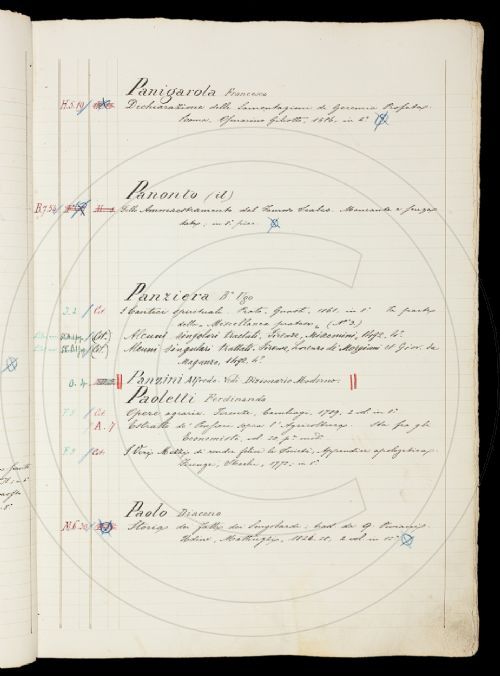 Panigarola Francesco
H.5.19 / Dichiarazione delle Lamentazioni di Geremia Profeta.
Roma, Gilotti, 1586. in 8°
Panonto (il)
B.7.52 / Ammaestramento del Manc. e senza
data, in 8° picc.
Panziera B° Ugo
D.2 / Cit. I Cantici spirituali. Prato, Guasti, 1861. in 8° Fa parte
della Miscellanea pratese, (N° 2)
(Cit.) Alcuni singolari trattati, Firenze, Miscomini, 1492, 4°
(Cit.) Alcuni singolari trattati, Firenze, Lorenzo di Morgiani et Giov. da
Maganza, 1492. 4°
O.4. Panzini Alfredo. Vedi Dizionario Moderno.
Paoletti Ferdinando
F.8 / Cit. Opere agrarie. Firenze, Cambiagi, 1789. 2 vol. in 8°
A.7 Estratto de' Pensieri sopra l'Agricoltura. Sta fra gli
Economisti, vol. 20, p° mod°
F.8 / Cit. I Veri Mezzi di render felici le Società, Appendice apologetica.
Firenze, 1772. in 8°
Paolo Diacono
M.6.30 / Storia dei fatti dei Longobardi, trad. da Q. Viviani
Udine, Mattiuzzi, 1826-28, 2 vol. in 12°